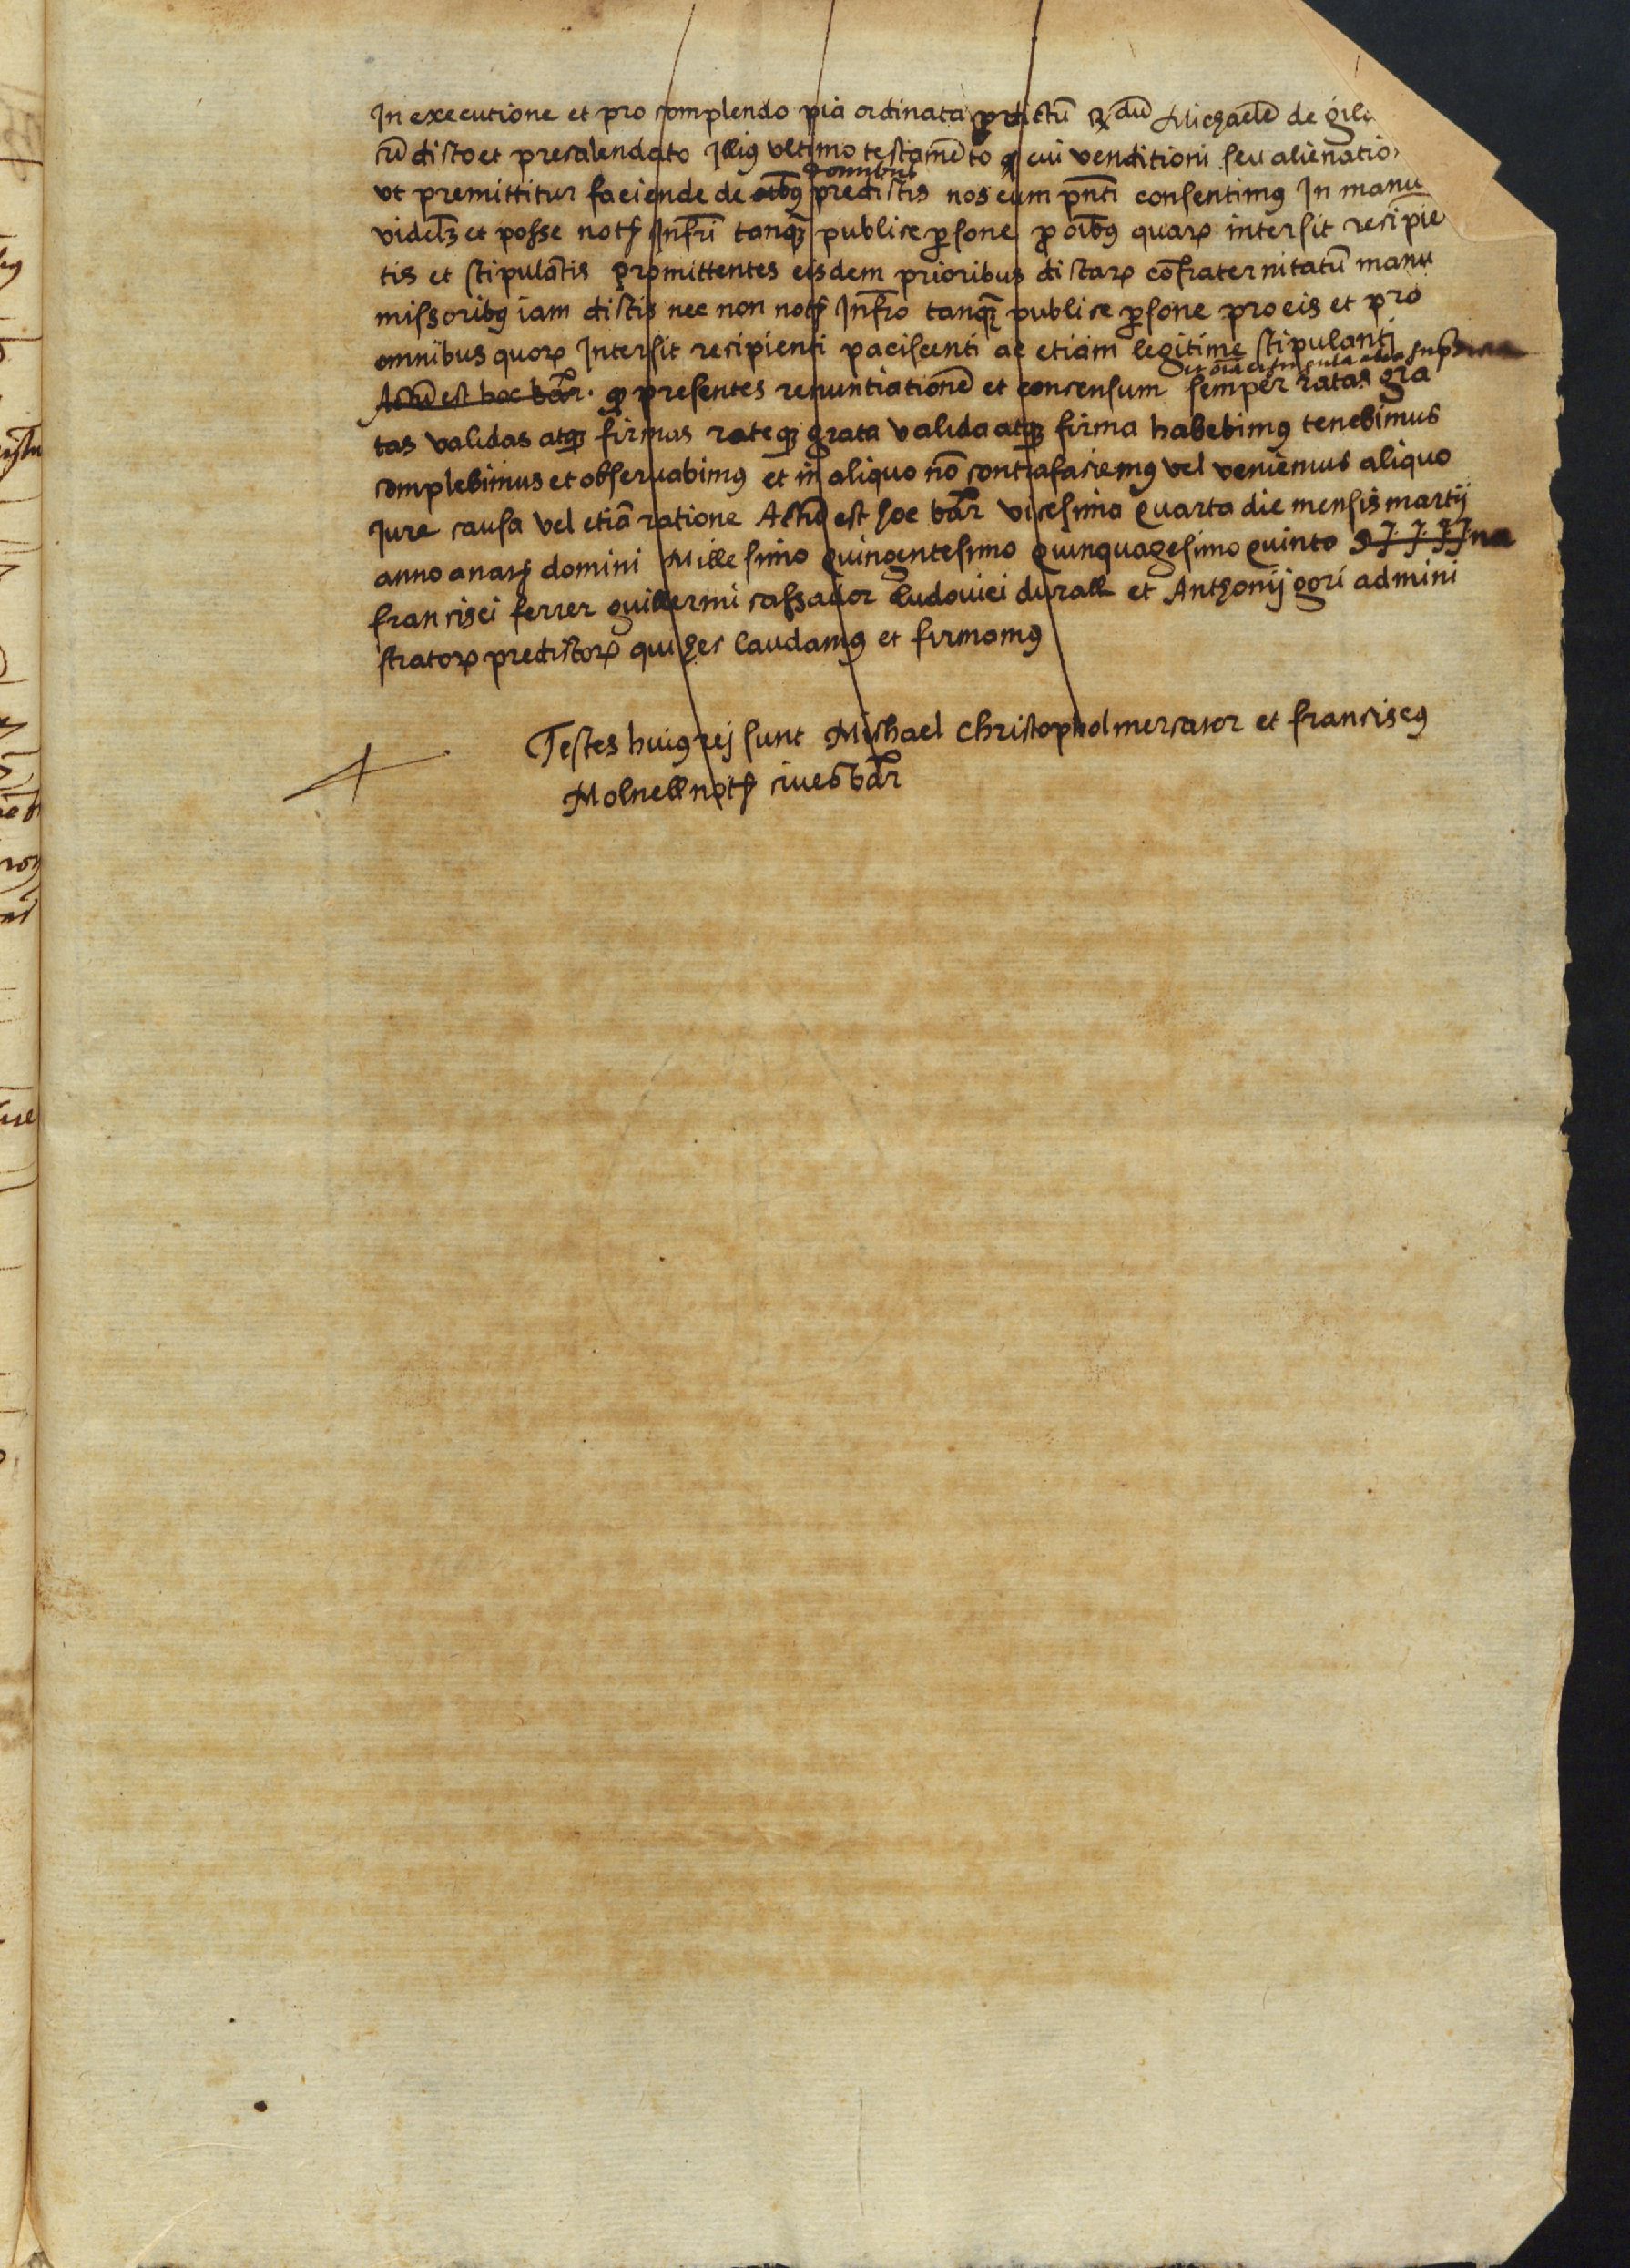 In executione et pro complendo pia ordinata p dictũ Rdũ Michaelẽ de
cũ dicto et precalendato Illiꝰ vltimo testamẽto cui venditioni seu alienatio
domibus
vt premittitur faciende de oībꝰ predictis nos cum pn̄ti consentimꝰ In manu
videlꝫ et posse notˢ Infrī tanqꝫ publice ꝑsone ꝓ oībꝰ quaꝝ intersit recipie
tis et stipulãtis promittentes eisdem prioribus dictaꝝ cõfraternitatũ manu
missoribꝰ iam dictis nec non notˢ Infr̃o tanqꝫ publice ꝑsone pro eis et pro
omnibus quoꝝ Intersit recipienti paciscenti ac etiam legitime stipulanti
et oīa
Actũ est hoc bar̃. presentes renuntiationẽ et concensum semper ratas gra
tas validas atqꝫ firmas rateqꝫ grata valida atqꝫ firma habebimꝰ tenebimus
complebimus et obseruabimꝰ et in aliquo nõ contrafaciemꝰ vel veniemus aliquo
Iure causa vel etiã ratione Actũ est hoc bar̃ vicesima quarta die mensis martij
anno a natˢ domini Millesimo quingentesimo quinquagesimo quinto
francisci ferrer guillermi cassador ludouici durall et Anthonij gori admini
stratoꝝ predictoꝝ qui hec laudamꝰ et firmamꝰ
Testes huiꝰ rej sunt Michael christophol mercator et franciscꝰ
Molnell notˢ ciues bar̃